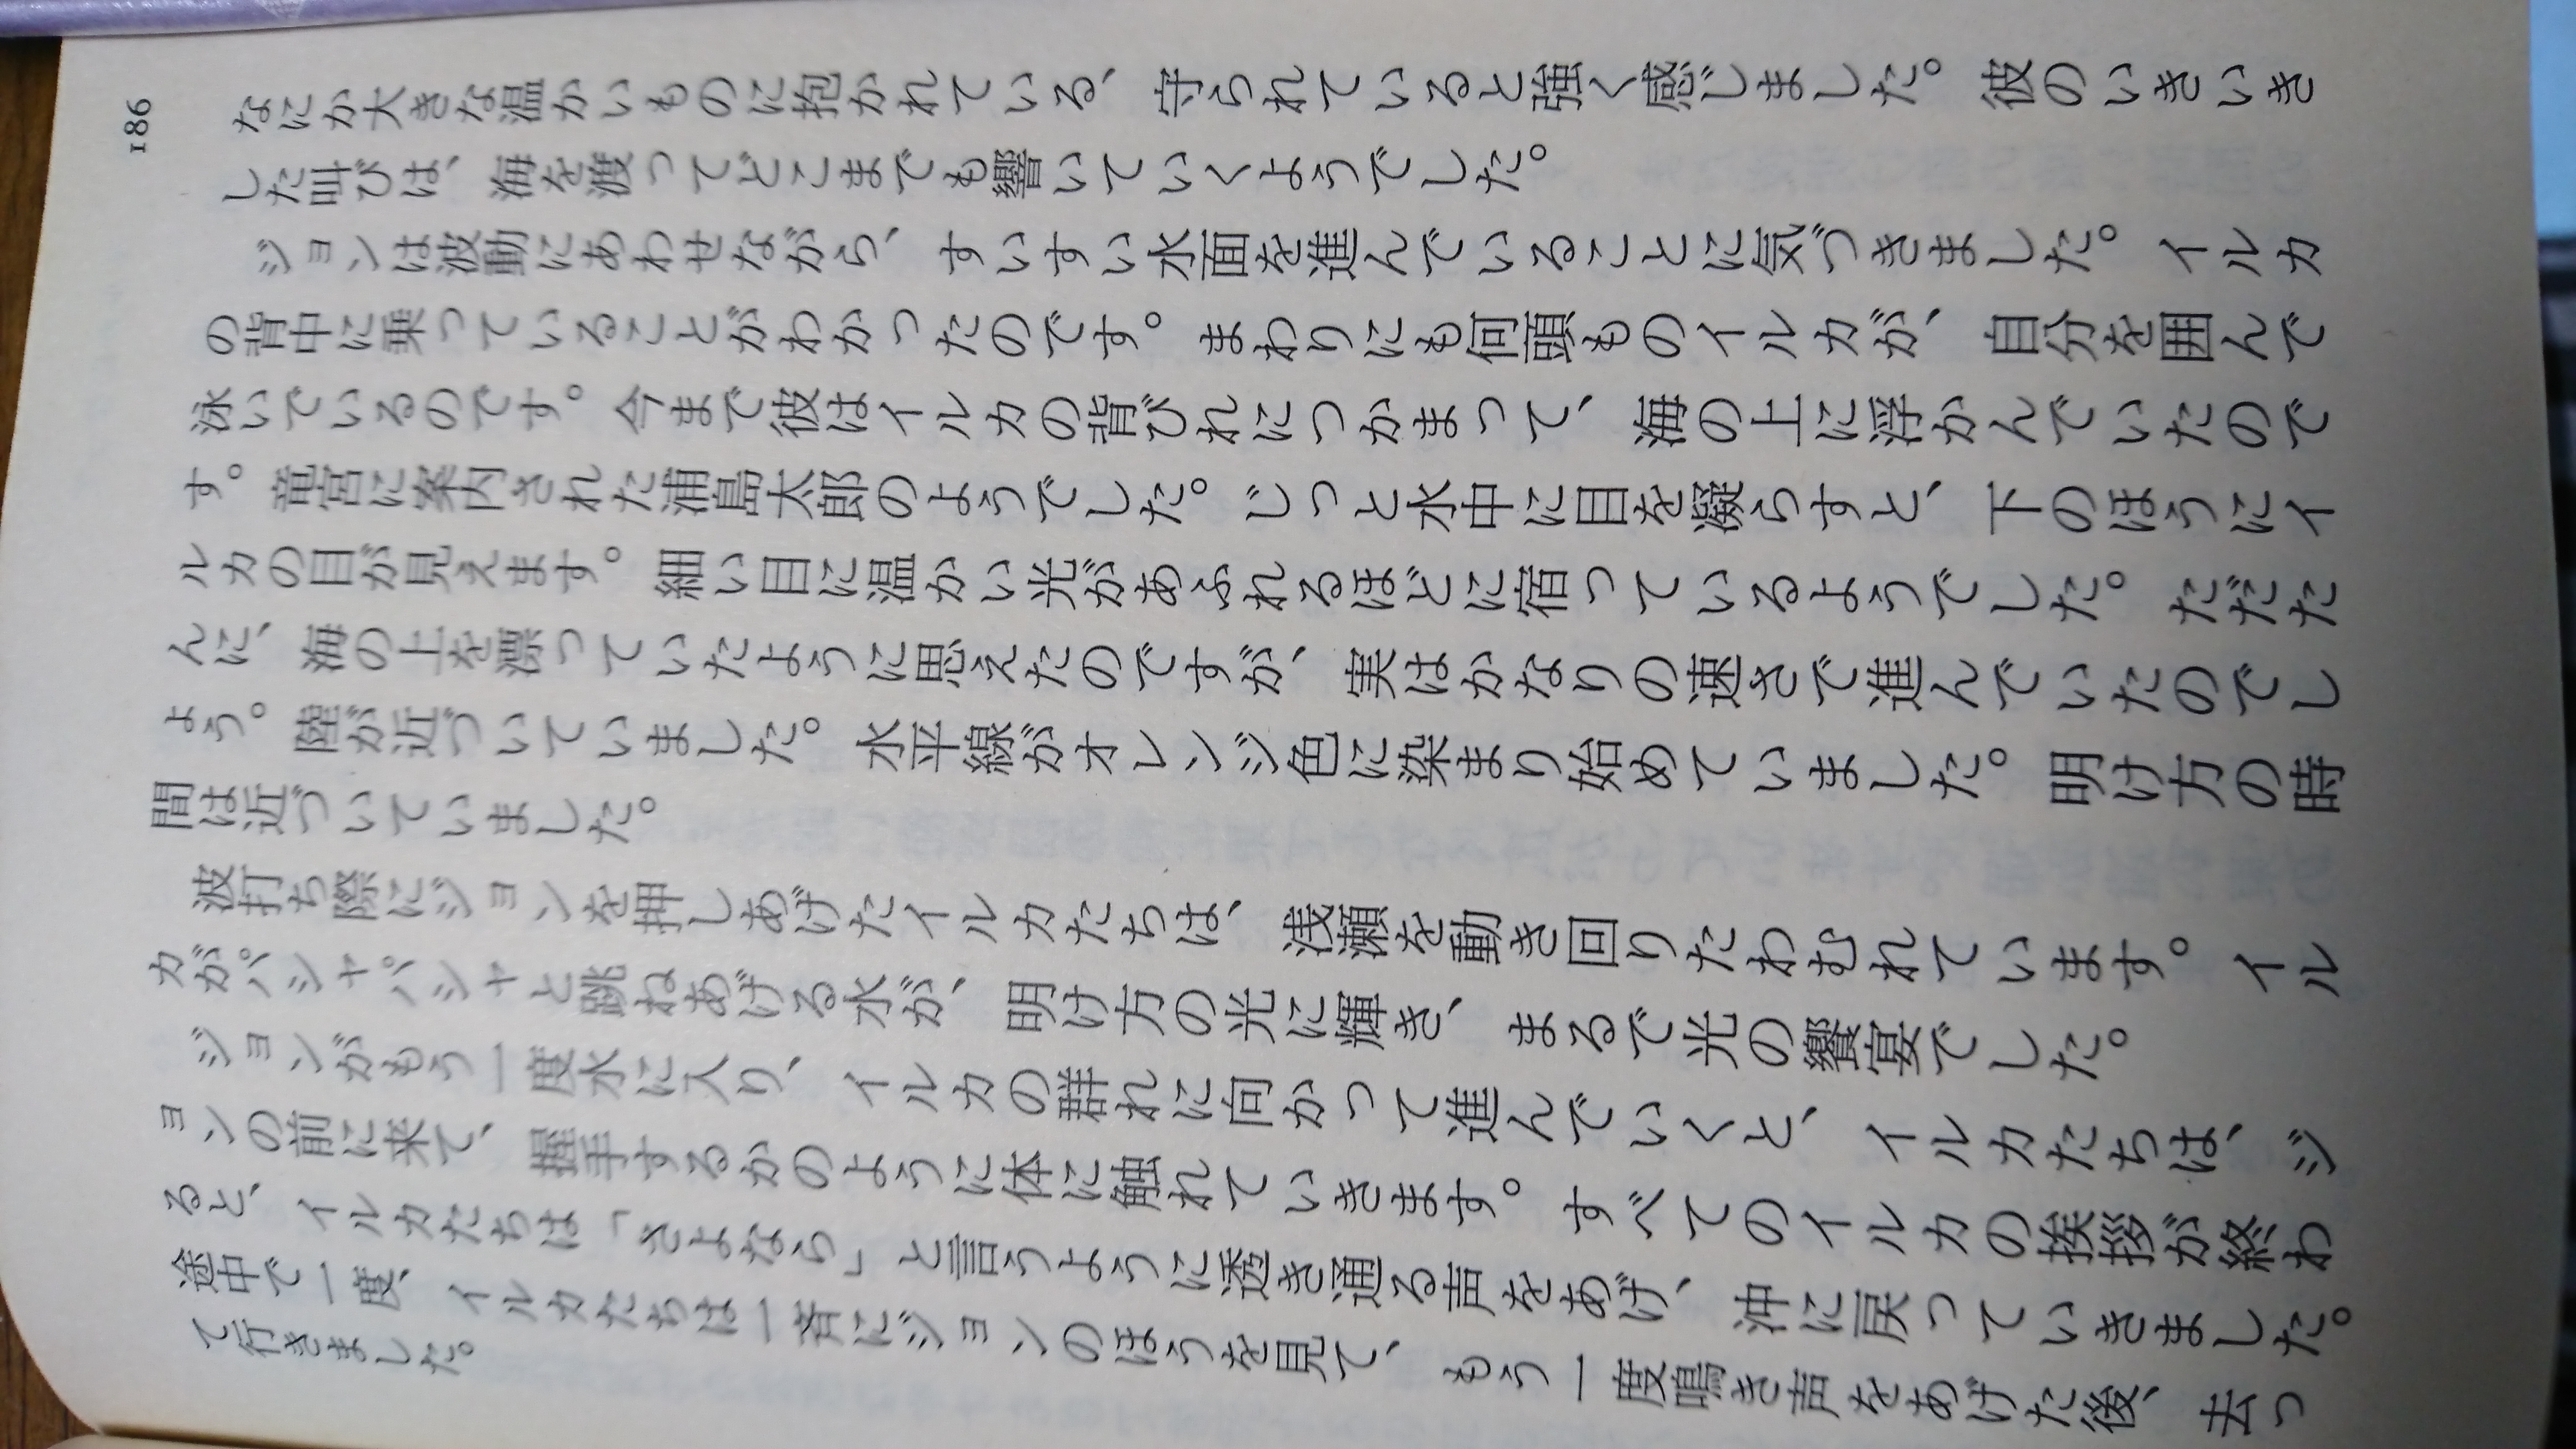 186
なにか大きな温かいものに抱かれている、守られていると強く感じました。彼のいきいき
した叫びは、海を渡ってどこまでも響いていくようでした。
ジョンは波動にあわせながら、すいすい水面を進んでいることに気づきました。イルカ
の背中に乗っていることがわかったのです。まわりにも何頭ものイルカが、自分を囲んで
泳いでいるのです。今まで彼はイルカの背びれにつかまって、海の上に浮かんでいたので
す。竜宮に案内された浦島太郎のようでした。じっと水中に目を凝らすと、下のほうにイ
ルカの目が見えます。細い目に温かい光があふれるほどに宿っているようでした。ただた
んに、海の上を漂っていたように思えたのですが、実はかなりの速さで進んでいたのでし
ょう。陸が近づいていました。水平線がオレンジ色に染まり始めていました。明け方の時
間は近づいていました。
波打ち際にジョンを押しあげたイルカたちは、浅瀬を動き回りたわむれています。イル
カがパシャパシャと跳ねあげる水が、明け方の光に輝き、まるで光の饗宴でした。
ジョンがもう一度水に入り、イルカの群れに向かって進んでいくと、イルカたちは、ジ
ョンの前に来て、握手するかのように体に触れていきます。すべてのイルカの挨拶が終わ
ると、イルカたちは「さよなら」と言うように透き通る声をあげ、沖に戻っていきました。
途中で一度、イルカたちは一斉にジョンのほうを見て、もう一度鳴き声をあげた後、去っ
て行きました。